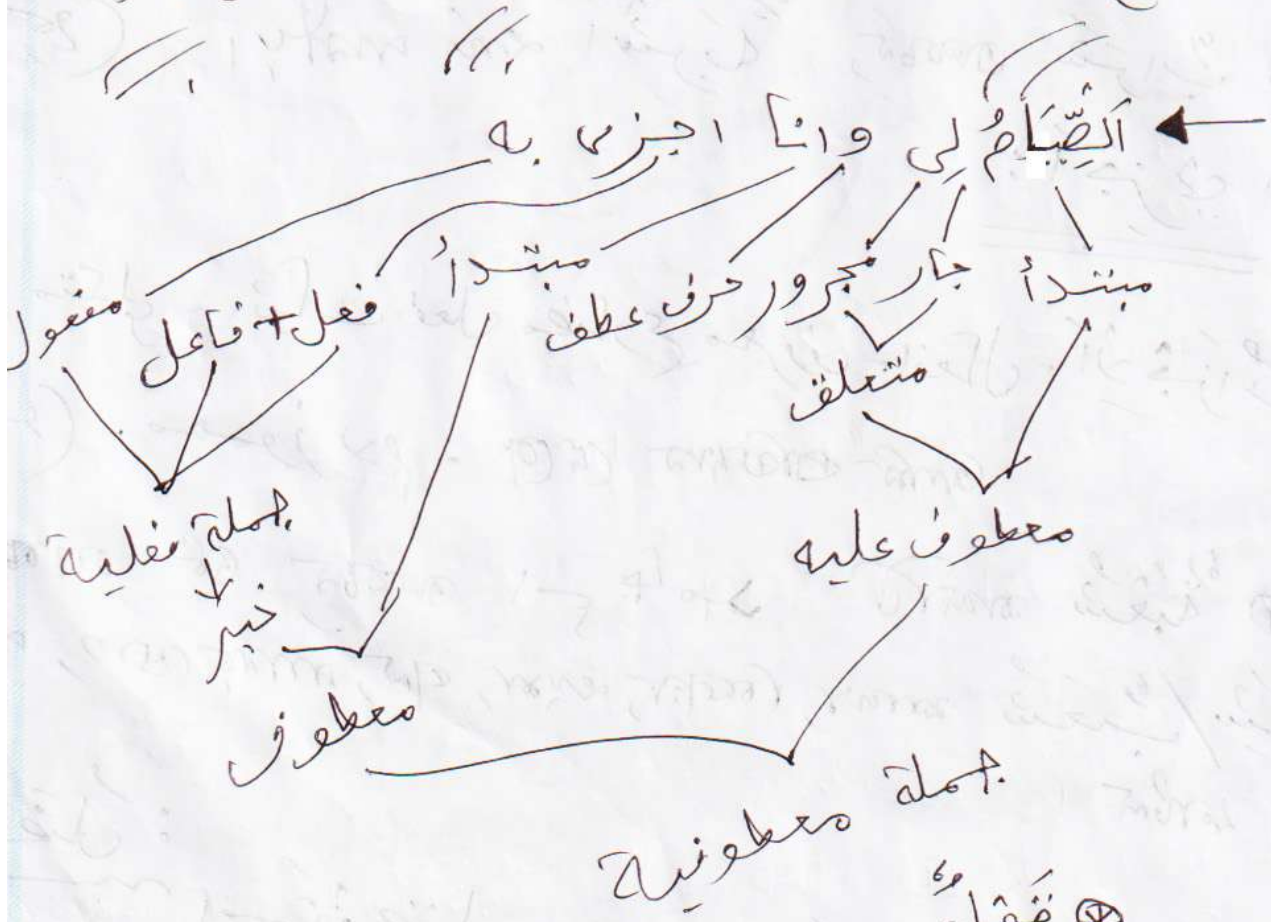 اَلصِّيَامُ لِي وانا اجزى به
مبتدأ جار مجرور حرف عطف مبتدأ فعل + فاعل مفعول
متعلق
معطوف عليه
جملة فعلية
خبر
معطوف
جملة معطوفية